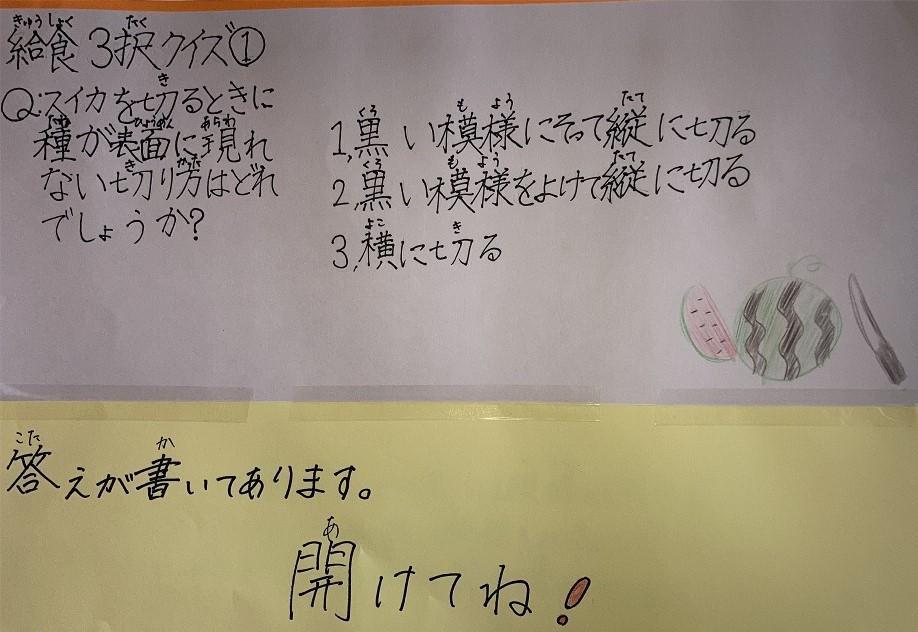 給食3択クイズ①
Q:スイカを切るときに
種が表面に現れ
ない切り方はどれ
でしょうか?
1,黒い模様にそって縦に切る
2,黒い模様をよけて縦に切る
3,横に切る
答えが書いてあります。
開けてね!